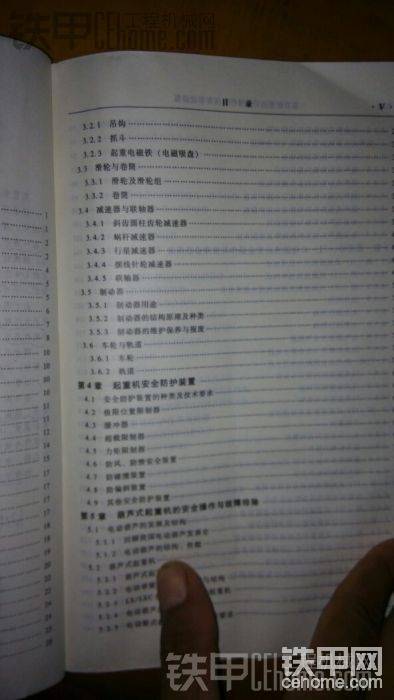 铁甲工程机械网
CEhome.com
目 录
·Ⅴ·
3.2.1 吊钩
3.2.2 抓斗
3.2.3 起重电磁铁（电磁吸盘）
3.3 滑轮与卷筒
3.3.1 滑轮及滑轮组
3.3.2 卷筒
3.4 减速器与联轴器
3.4.1 斜齿圆柱齿轮减速器
3.4.2 蜗杆减速器
3.4.3 行星减速器
3.4.4 摆线针轮减速器
3.4.5 联轴器
3.5 制动器
3.5.1 制动器用途
3.5.2 制动器的结构原理及种类
3.5.3 制动器的维护保养与报废
3.6 车轮与轨道
3.6.1 车轮
3.6.2 轨道
第4章 起重机安全防护装置
4.1 安全防护装置的种类及技术要求
4.2 极限位置限制器
4.3 缓冲器
4.4 超载限制器
4.5 力矩限制器
4.6 防风、防滑安全装置
4.7 防碰撞装置
4.8 防偏斜装置
4.9 其他安全防护装置
第5章 葫芦式起重机的安全操作与故障排除
5.1 电动葫芦的发展及结构
5.1.1 回顾我国电动葫芦发展史
5.1.2 电动葫芦的结构、性能
5.2 葫芦式起重机
5.2.1 葫芦式
5.2.2 电动单梁
与结构
5.2.3 LX/LXC
起重机
5.2.4 电动葫芦
5.2.5 电动葫
铁甲工程机械网
CEhome.com
铁甲网
cehome.com